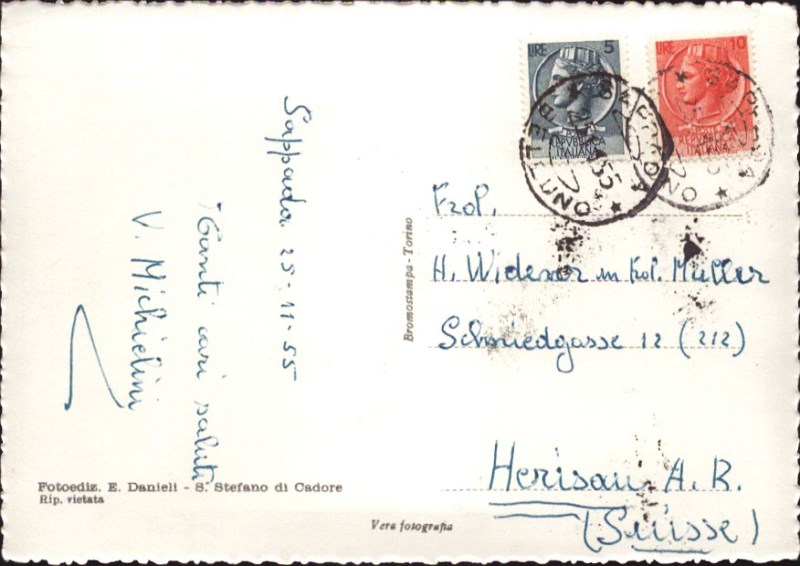 Sappada 25-11-55
Tanti cari saluti
V. Michielini
Fotoediz. E. Danieli - S. Stefano di Cadore
Rip. vietata
Bromostampa - Torino
Vera fotografia
LIRE 5
REPVBBLICA
ITALIANA
LIRE 10
REPVBBLICA
ITALIANA
SAPPADA
BELLUNO
Frol.
H. Widener m Kol. Müller
Schmiedgasse 12 (212)
Herisau A. R.
(Suisse)